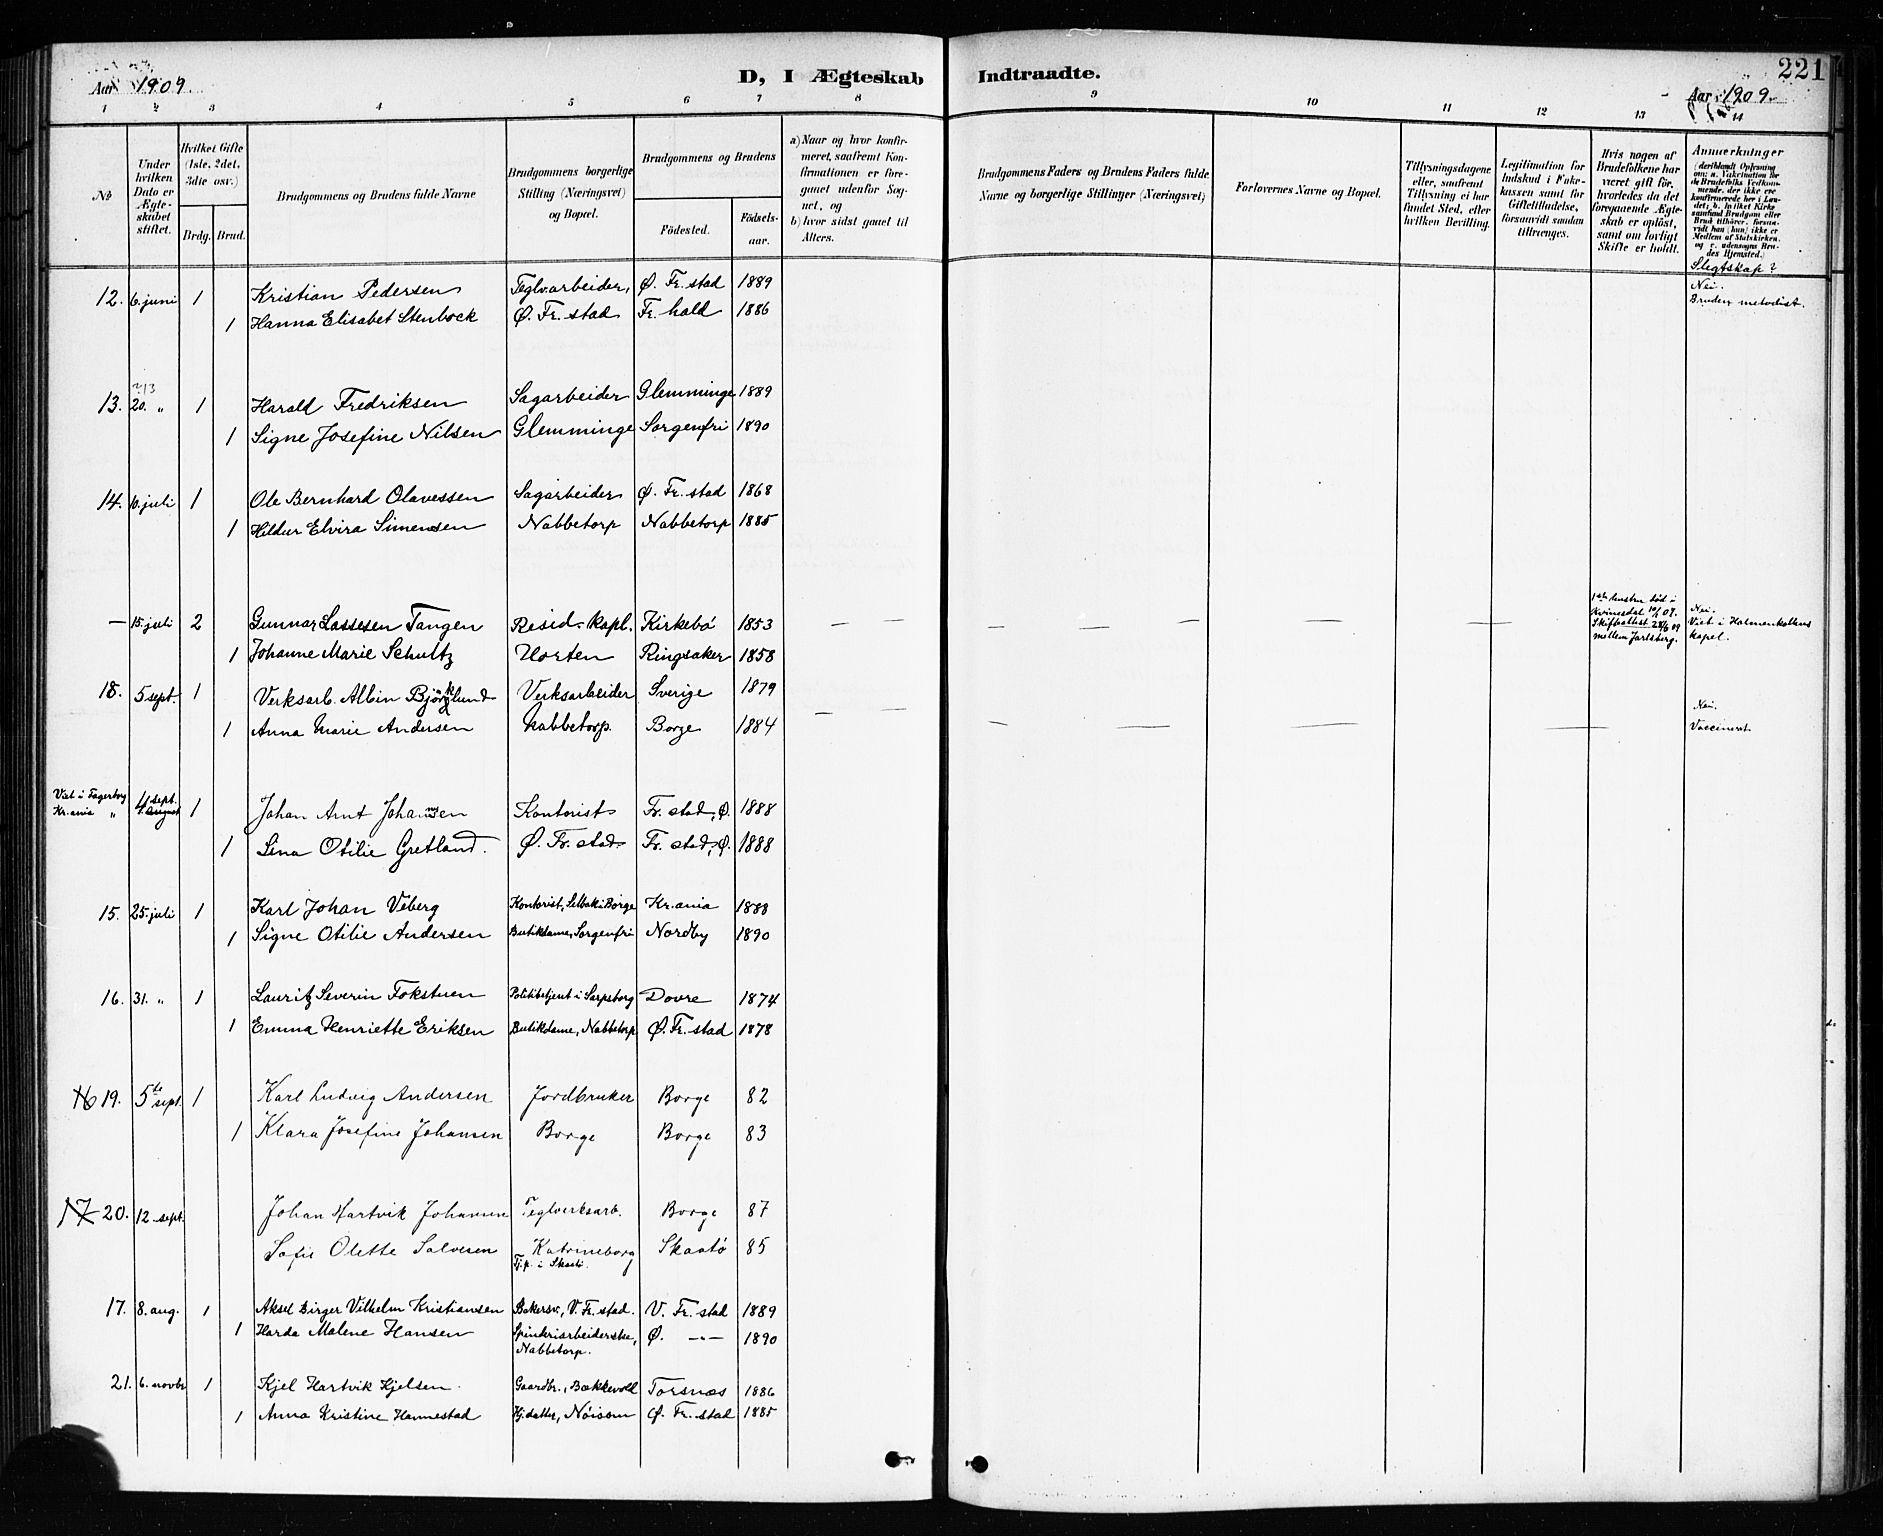 Aar 1909.
D, I Ægteskab
Indtraadte.
Aar 1909.
221
1 2 3 4 5 6 7 8 9 10 11 12 13 14
No
Under hvilken Dato er Ægteskabet stiftet.
Hvilket Gifte (1ste, 2det, 3die osv.)
Brdg. Brud.
Brudgommens og Brudens fulde Navne
Brudgommens borgerlige Stilling (Næringsvei) og Bopæl.
Brudgommens og Brudens
Födested.
Födselsaar.
a) Naar og hvor konfirmeret, saafremt Konfirmationen er foregaaet udenfor Sognet, og
b) hvor sidst gaaet til Alters.
Brudgommens Faders og Brudens Faders fulde Navne og borgerlige Stillinger (Næringsvei)
Forlovernes Navne og Bopæl.
Tillysningsdagene eller, saafremt Tillysning ei har fundet Sted, efter hvilken Bevilling.
Legitimation for Indskud i Enkekassen samt for Giftetilladelse, forsaavidt saadan tiltrænges.
Hvis nogen af Brudefolkene har været gift før, hvorledes da det foregaaende Ægteskab er oplöst, samt om lovligt Skifte er holdt.
Anmærkninger
Slegtskap?
12. 6. juni 1 Kristian Pedersen Teglv.arbeider, Ø. Fr. stad 1889 Nei.
1 Hanna Elisabet Stenbock Ø. Fr. stad Fr. hald 1886 Bruden metodist.
13. 20. " 1 Harald Fredriksen Sagarbeider Glemminge 1889
1 Signe Josefine Nilsen Glemminge Sorgenfri 1890
14. 10. juli 1 Ole Bernhard Olavessen Sagarbeider Ø. Fr. stad 1868
1 Hildur Elvira Simensen Nabbetorp Nabbetorp 1885
— 15. juli 2 Gunnar Lassesen Tangen Resid. kapl. Kirkebö 1853 — — — — — —
1ste hustru död i Kvinesdal 10/1 07. Skifteattest 28/6 09 mellem Jarlsberg.
Nei. Viet i Holmenkollens kapel.
1 Johanne Marie Schultz Horten Ringsaker 1858
18. 5 sept. 1 Verksarb. Albin Björklund Verksarbeider Sverige 1879 Nei.
1 Anna Marie Andersen Nabbetorp. Borge 1884 — — — — — — Vaccineret.
Viet i Fagerborg Kr.ania " 4 sept. 4. august 1 Johan Arnt Johansen Kontorist Fr. stad, Ø. 1888
1 Lina Otilie Gretland. Ø. Fr. stad. Fr. stad, Ø. 1888
15. 25. juli 1 Karl Johan Viberg Kontorist, Selbak i Borge Kr.ania 1888
1 Signe Otilie Andersen Butikdame, Sorgenfri Nordby 1890
16. 31. " 1 Lauritz Severin Fokstuen Politibetjent i Sarpsborg Dovre 1874
1 Emma Henriette Eriksen Butikdame, Nabbetorp Ø. Fr. stad 1878
16 19. 5te sept. 1 Karl Ludvig Andersen Jordbruker Borge 82
1 Klara Josefine Johansen Borge Borge 83
17 20. 12. sept. Johan Hartvik Johansen Teglverksarb. Borge 87
Sofie Olette Salvesen Katrineborg Skaatö 85
Tj.p. i Skaatö.
17. 8. aug. 1 Aksel Birger Vilhelm Kristiansen Bakersv., V. Fr. stad. V. Fr. stad 1889
1 Harda Malene Hansen Spinderiarbeiderske, Nabbetorp. Ø. —"— 1890
21. 6. novbr 1 Kjel Hartvik Kjelsen. Gaardbr., Bækkevold Torsnæs 1886
1 Anna Kristine Hannestad Hj.datter, Nöisom Ø. Fr. stad 1885